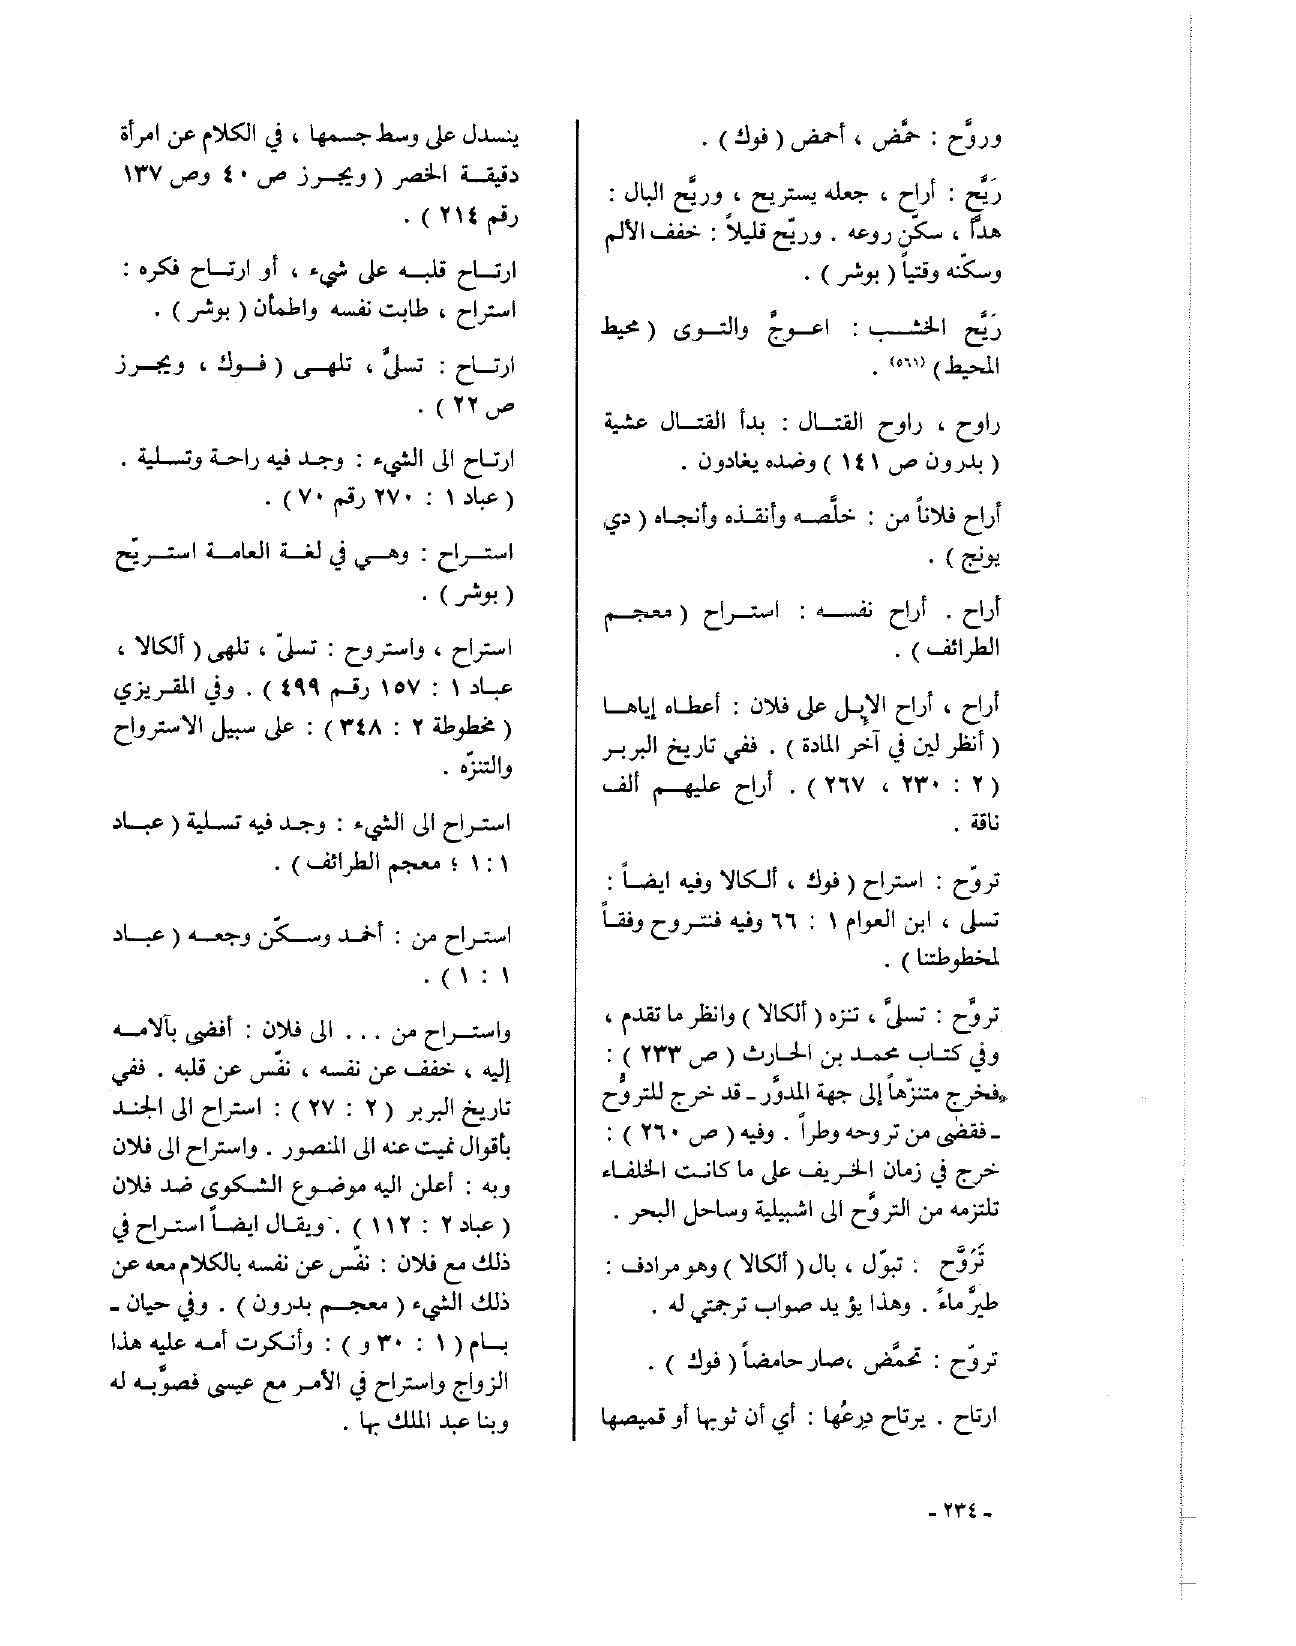 وروَّح : حمَّض ، أحمض ( فوك ) .
رَيَّح : أراح ، جعله يستريح ، وريَّح البال :
هدأَّ ، سكّن روعه . وريّح قليلاً : خفف الألم
وسكّنه وقتياً ( بوشر ) .
رَيَّح الخشب : اعوجَّ والتوى ( محيط
المحيط ) (٥٦١) .
راوح ، راوح القتال : بدأ القتال عشية
( بدرون ص ١٤١ ) وضده يغادون .
أراح فلاناً من : خلَّصه وأنقذه وأنجاه ( دي
يونج ) .
أراح . أراح نفسه : استراح ( معجم
الطرائف ) .
أراح ، أراح الإبل على فلان : أعطاه إياها
( أنظر لين في آخر المادة ) . ففي تاريخ البربر
( ٢ : ٢٣٠ ، ٢٦٧ ) . أراح عليهم ألف
ناقة .
تروّح : استراح ( فوك ، ألكالا وفيه ايضاً :
تسلى ، ابن العوام ١ : ٦٦ وفيه فنتروح وفقاً
لمخطوطتنا ) .
تروَّح : تسلىَّ ، تنزه ( ألكالا ) وانظر ما تقدم ،
وفي كتاب محمد بن الحارث ( ص ٢٣٣ ) :
«فخرج متنزّهاً إلى جهة المدوَّر ـ قد خرج للتروُّح
ـ فقضى من تروحه وطراً . وفيه ( ص ٢٦٠ ) :
خرج في زمان الخريف على ما كانت الخلفاء
تلتزمه من التروُّح الى اشبيلية وساحل البحر .
تَرَوَّح : تبوّل ، بال ( ألكالا ) وهو مرادف :
طيرَّ ماءً . وهذا يؤيد صواب ترجمتي له .
تروّح : تحمَّض ،صار حامضاً ( فوك ) .
ارتاح . يرتاح دِرعُها : أي أن ثوبها أو قميصها
ينسدل على وسط جسمها ، في الكلام عن امرأة
دقيقة الخصر ( ويجرز ص ٤٠ وص ١٣٧
رقم ٢١٤ ) .
ارتاح قلبه على شيء ، أو ارتاح فكره :
استراح ، طابت نفسه واطمأن ( بوشر ) .
ارتاح : تسلىَّ ، تلهى ( فوك ، ويجرز
ص ٢٢ ) .
ارتاح الى الشيء : وجد فيه راحة وتسلية .
( عباد ١ : ٢٧٠ رقم ٧٠ ) .
استراح : وهي في لغة العامة استريّح
( بوشر ) .
استراح ، واستروح : تسلىّ ، تلهى ( ألكالا ،
عباد ١ : ١٥٧ رقم ٤٩٩ ) . وفي المقريزي
( مخطوطة ٢ : ٣٤٨ ) : على سبيل الاسترواح
والتنزّه .
استراح الى الشيء : وجد فيه تسلية ( عباد
١ : ١ ؛ معجم الطرائف ) .
استراح من : أخمد وسكّن وجعه ( عباد
١ : ١ ) .
واستراح من ... الى فلان : أفضى بآلامه
إليه ، خفف عن نفسه ، نفّس عن قلبه . ففي
تاريخ البربر ( ٢ : ٢٧ ) : استراح الى الجند
بأقوال نميت عنه الى المنصور . واستراح الى فلان
وبه : أعلن اليه موضوع الشكوى ضد فلان
( عباد ٢ : ١١٢ ) . ويقال ايضاً استراح في
ذلك مع فلان : نفّس عن نفسه بالكلام معه عن
ذلك الشيء ( معجم بدرون ) . وفي حيان ـ
بسام ( ١ : ٣٠ و ) : وأنكرت أمه عليه هذا
الزواج واستراح في الأمر مع عيسى فصوَّبه له
وبنا عبد الملك بها .
ـ ٢٣٤ ـ